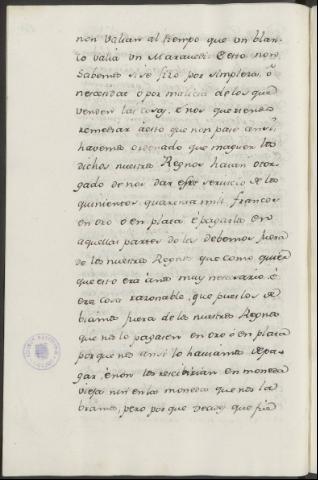 non valian al tiempo que un blan-
co valia un Maravedi: è esto non
sabemos si se fizo por simpleza, ò
necesidat ò por malicia de los que
venden las cosas, è nos queriendo
remediar àesto que non pase ansi,
havemos ordenado que maguer los
dichos nuestros Regnos havian otor-
gado de nos dar este servicio de los
quinientos quarenta mill francos
en oro ò en plata è pagarla en
aquellas partes do los debemos fuera
de los nuestros Regnos que como quier
que esto era à nos muy necesario è
era cosa razonable, que pues los de-
biamos fuera de los nuestros Regnos
que nos lo pagasen en oro ò en plata
porque nos ansi lo haviamos de pa-
gar, è non los rescibirian en moneda
vieja nin en la moneda que nos la-
bramos; pero por que que fue